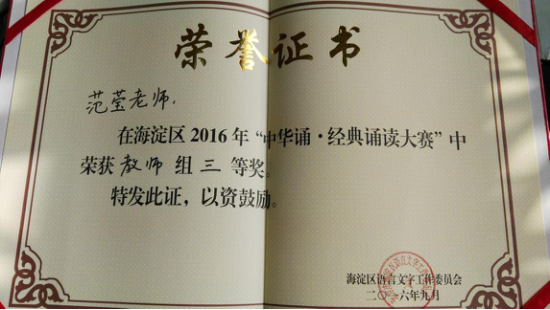 荣誉证书
范莹老师.
在海淀区2016年“中华诵·经典诵读大赛”中
荣获教师组三等奖。
特发此证，以资鼓励。
海淀区语言文字工作委员会
二〇一六年九月